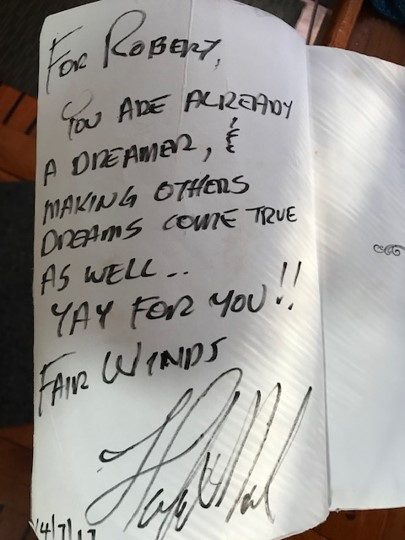 FOR ROBERT,
YOU ARE ALREADY
A DREAMER, &
MAKING OTHERS
DREAMS COME TRUE
AS WELL..
YAY FOR YOU!!
FAIR WINDS
4/7/17